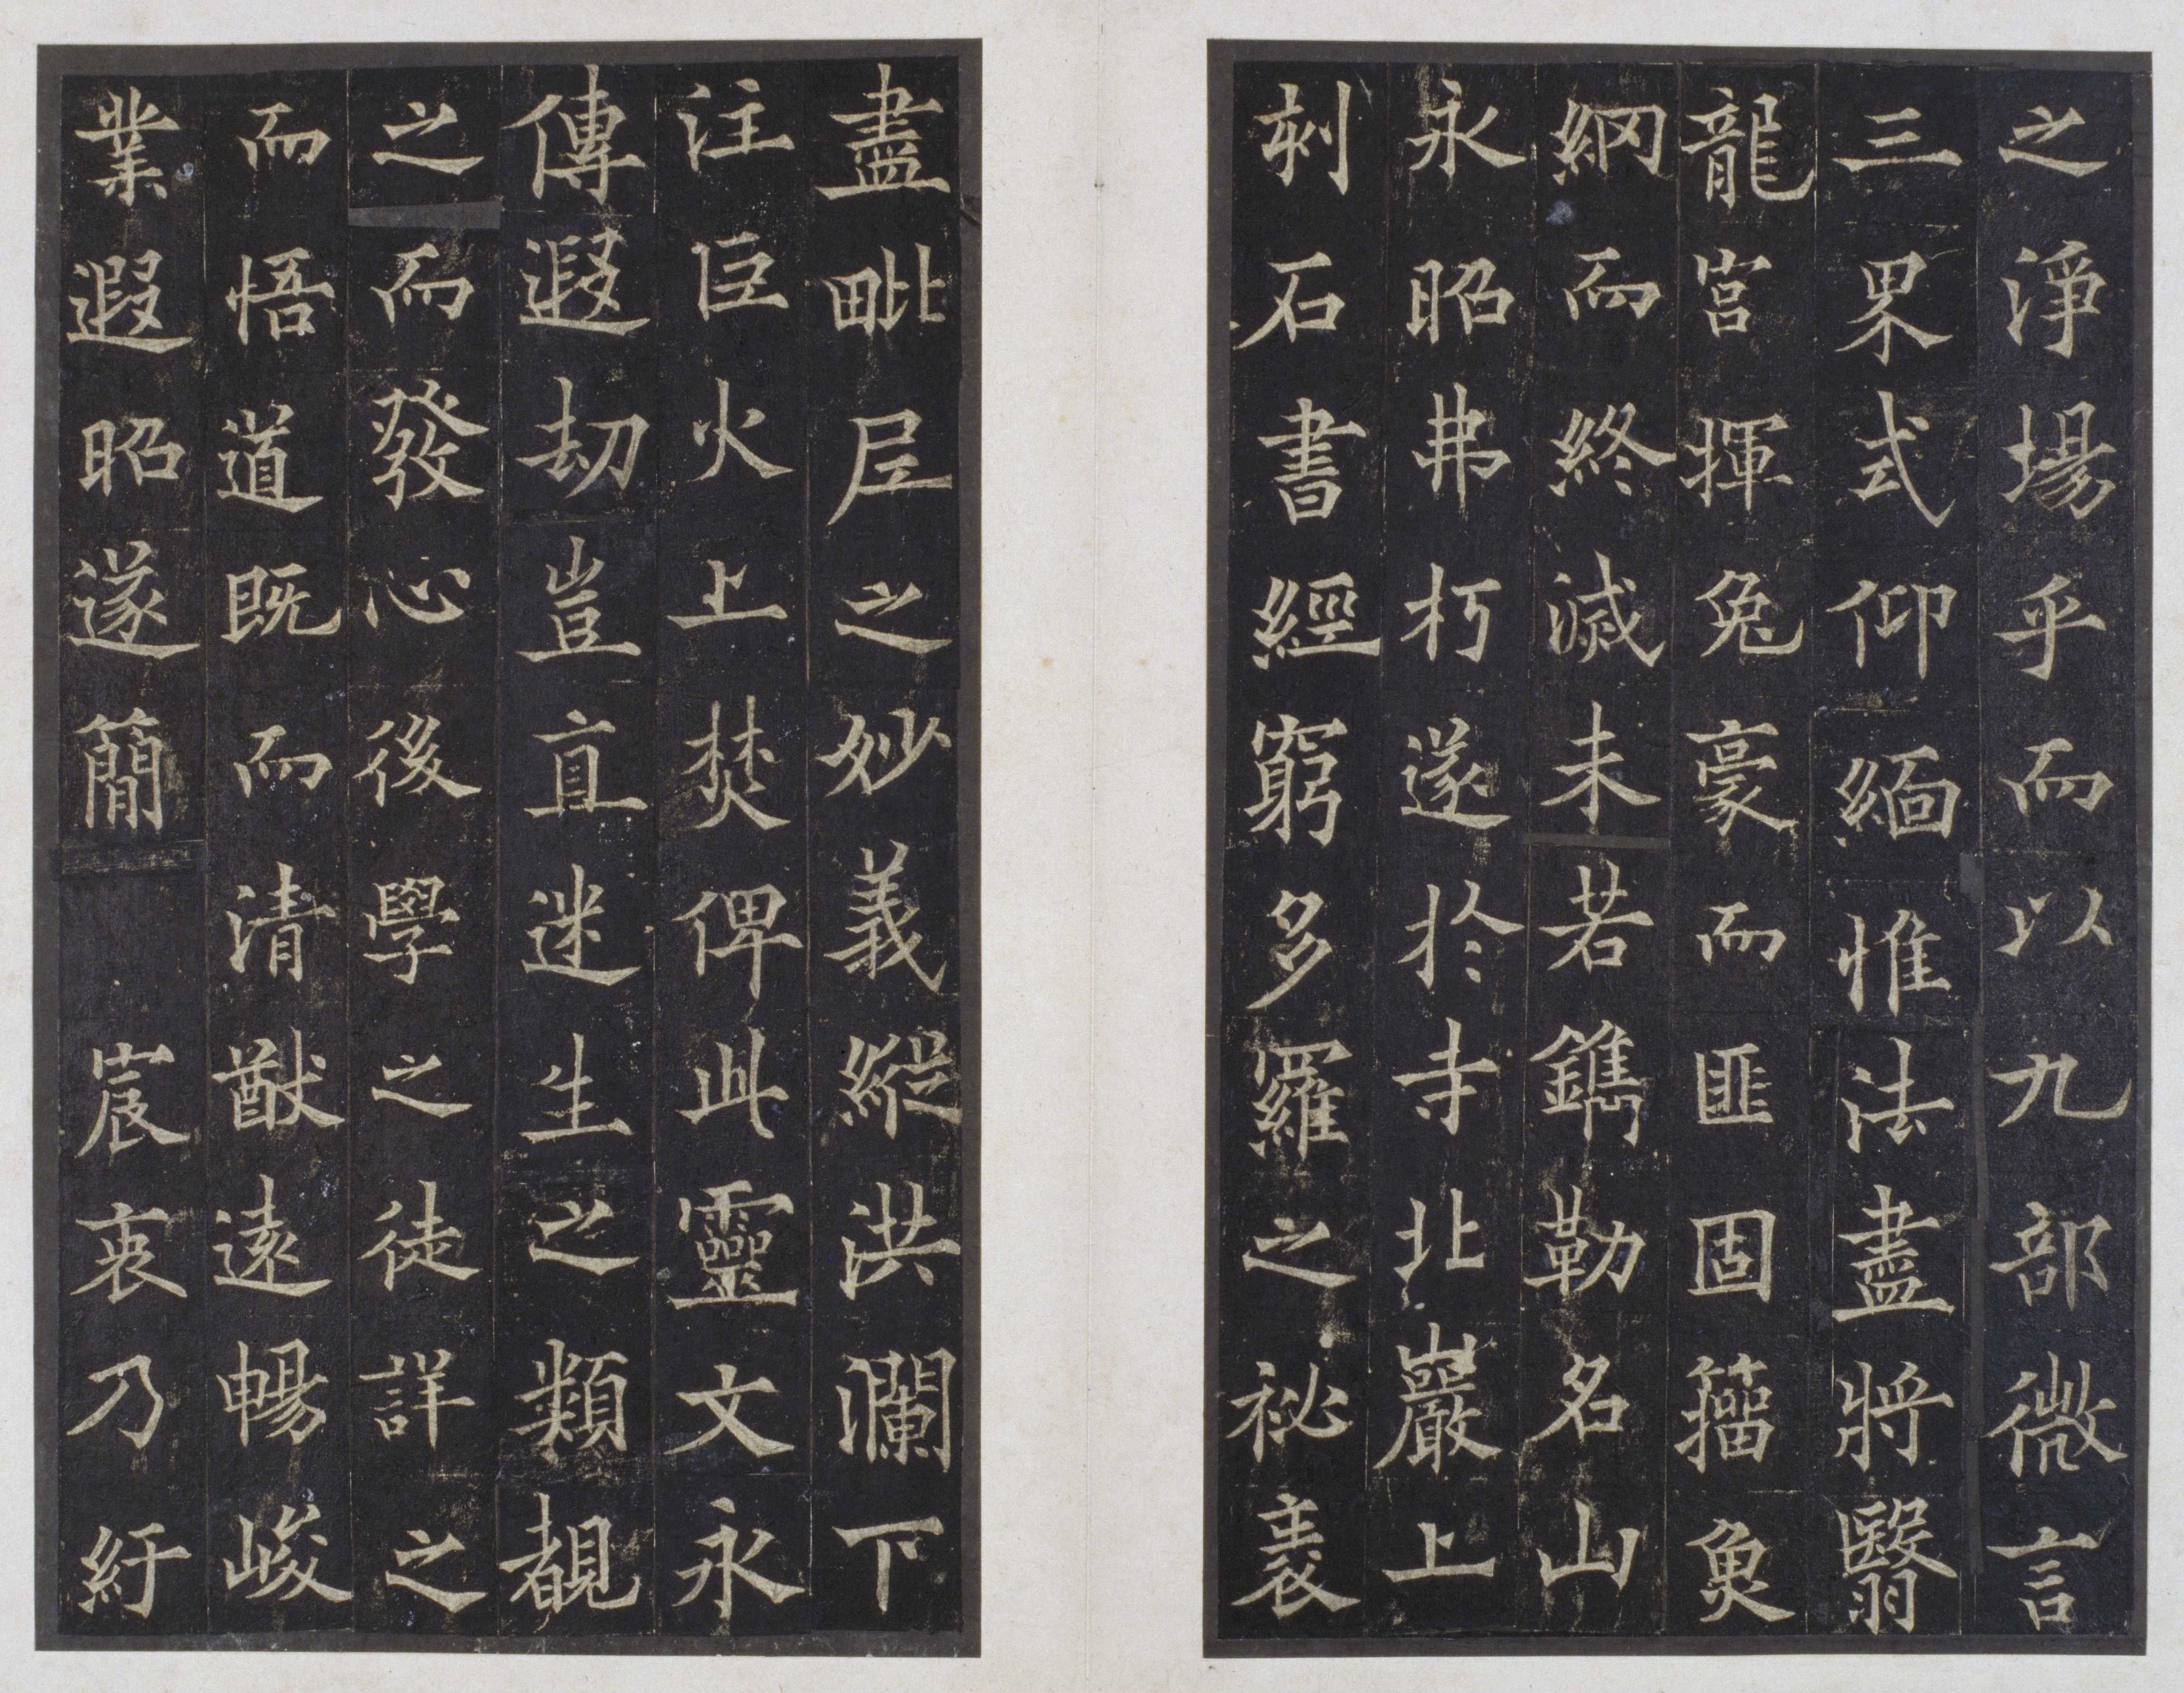 之淨場乎而以九部微言
三界式仰緬惟法盡將翳
龍宮揮兔豪而匪固籀魚
網而終滅未若鐫勒名山
永昭弗朽遂於寺北巖上
刹石書經窮多羅之祕袠
盡毗尼之妙義縱洪瀾下
注巨火上焚俾此靈文永
傳遐劫豈直迷生之類覩
之而發心後學之徒詳之
而悟道既而清猷遠暢峻
業遐昭遂簡 宸衷乃紆